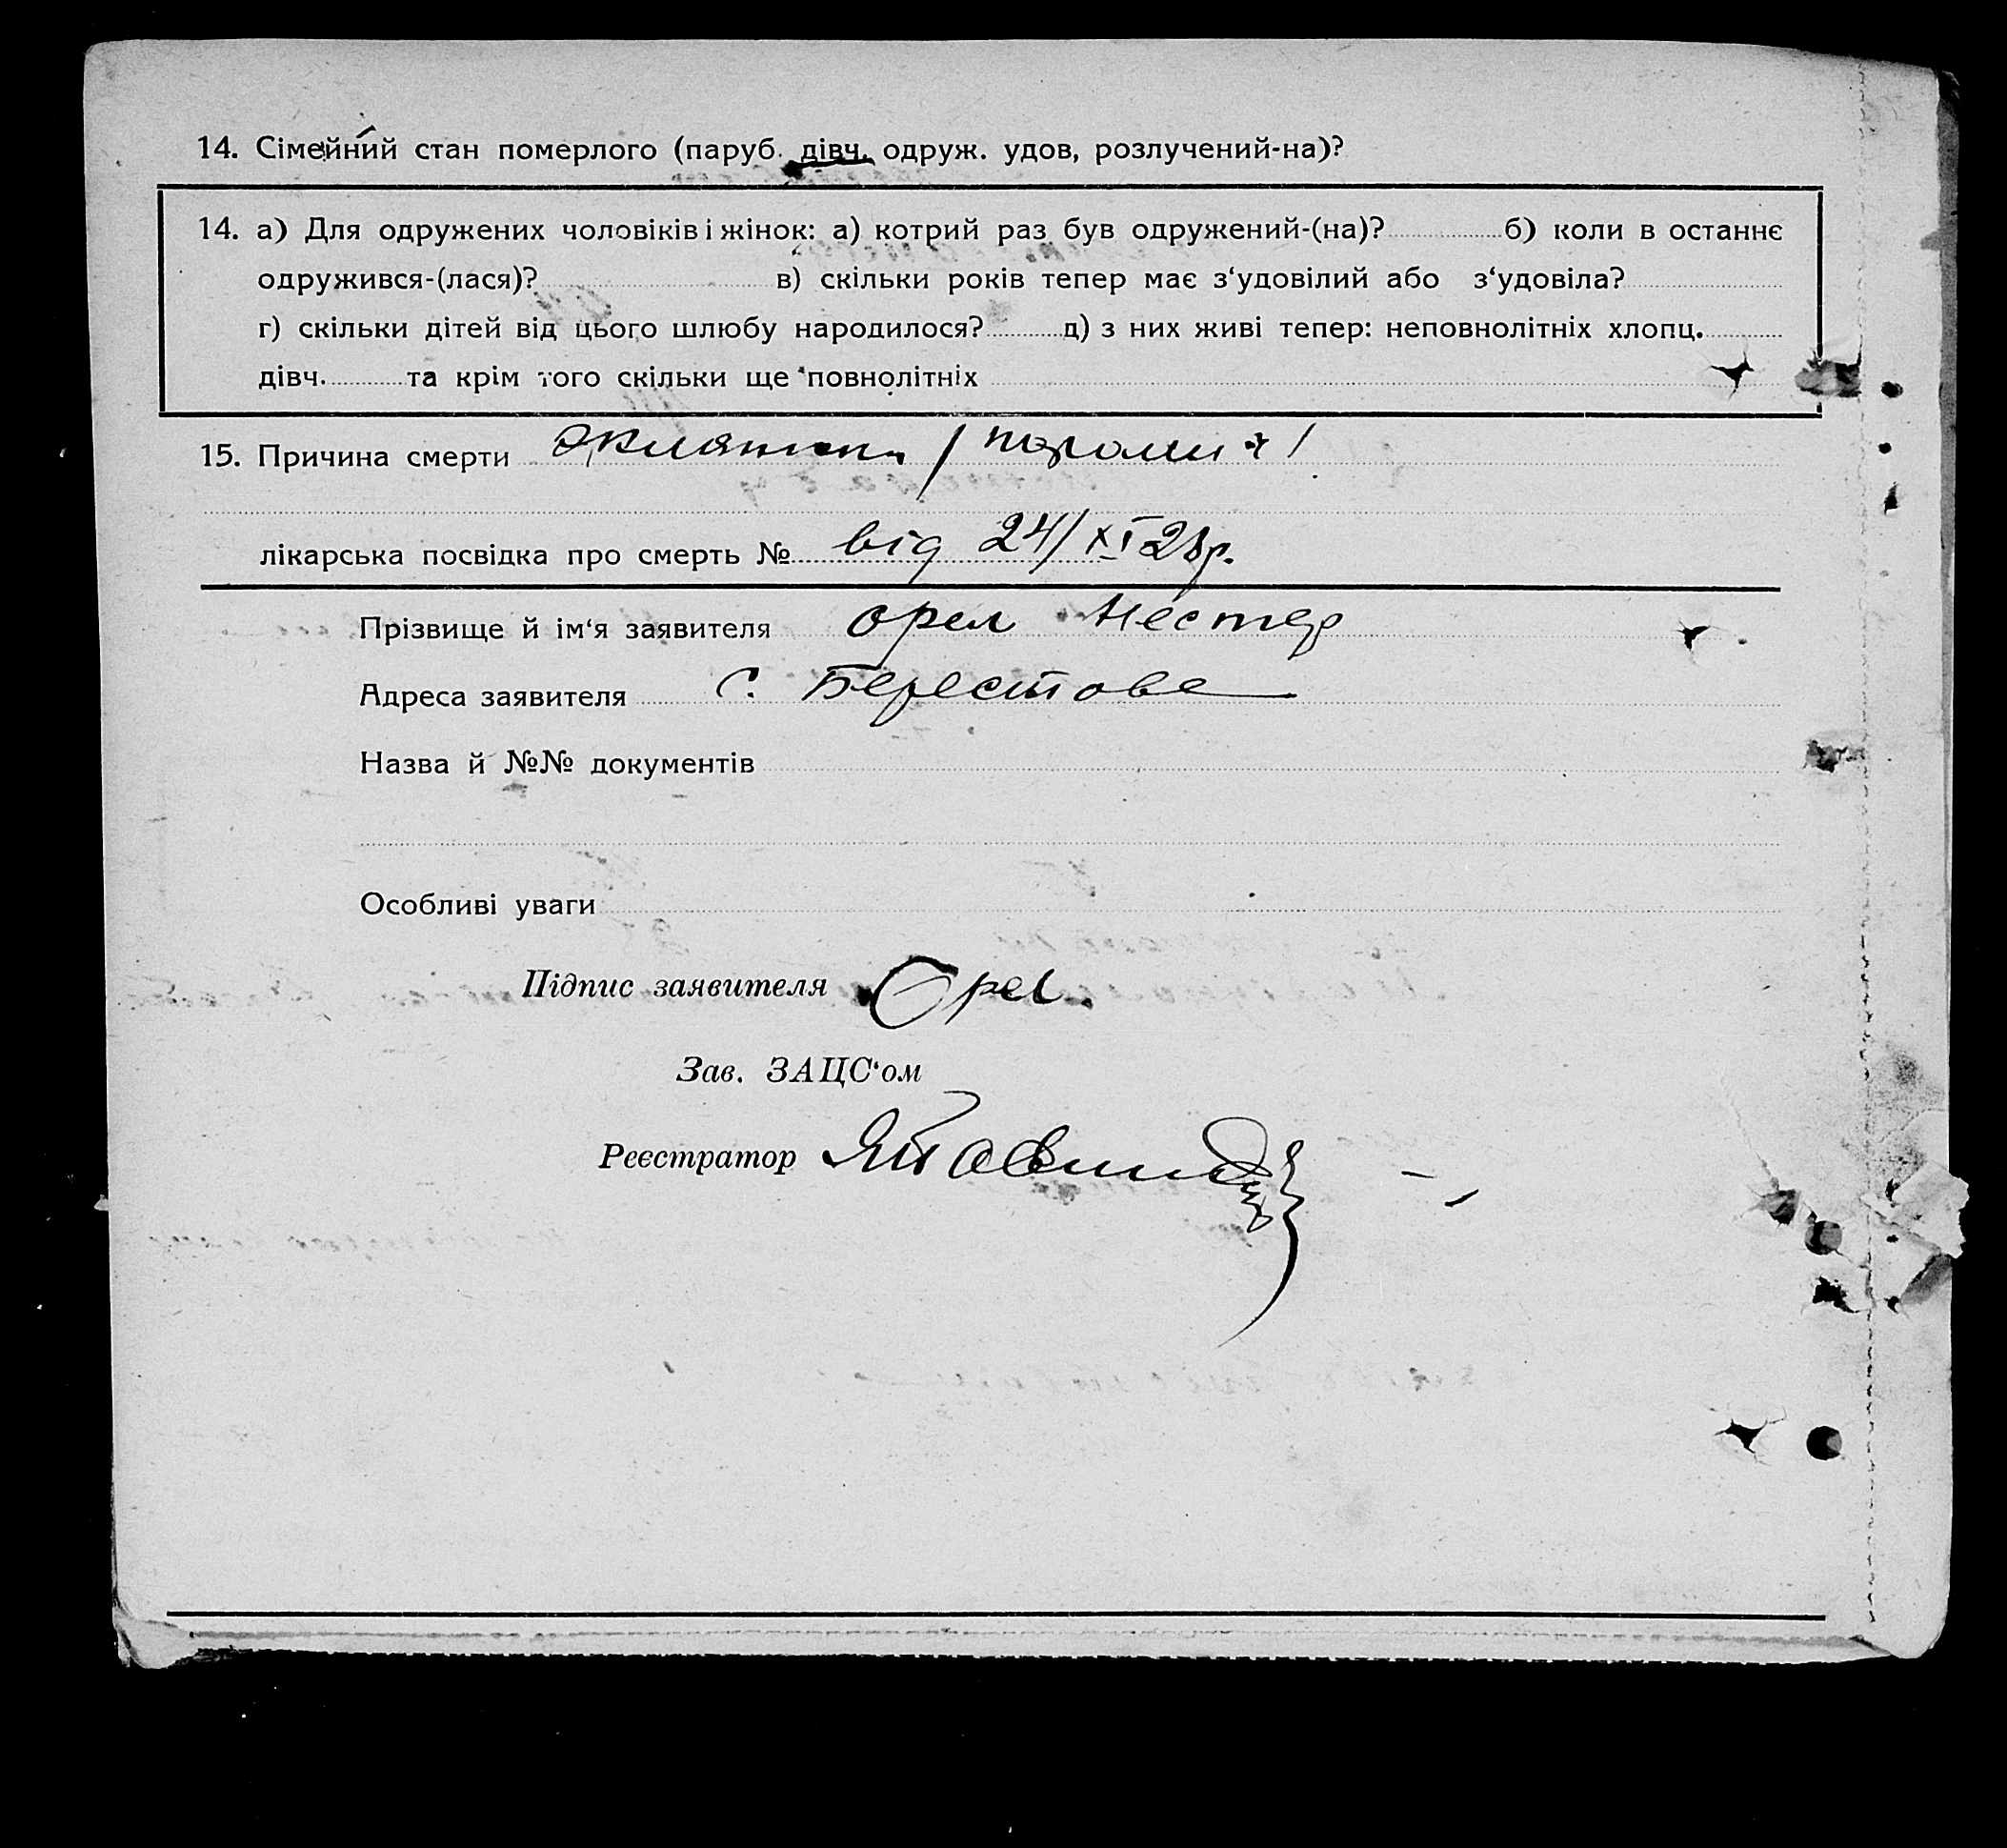 14. Сімейний стан померлого (паруб. дівч. одруж. удов, розлучений-на)?
14. а) Для одружених чоловіків і жінок: а) котрий раз був одружений-(на)? б) коли в останнє
одружився-(лася)? в) скільки років тепер має з‘удовілий або з‘удовіла?
г) скільки дітей від цього шлюбу народилося? д) з них живі тепер: неповнолітніх хлопц.
дівч. та крім того скільки ще повнолітніх
15. Причина смерти
лікарська посвідка про смерть № від 24/XI 28р.
Прізвище й ім‘я заявителя Орел Нестер
Адреса заявителя с. Берестове
Назва й №№ документів
Особливі уваги
Підпис заявителя Орел.
Зав. ЗАЦС‘ом
Реєстратор